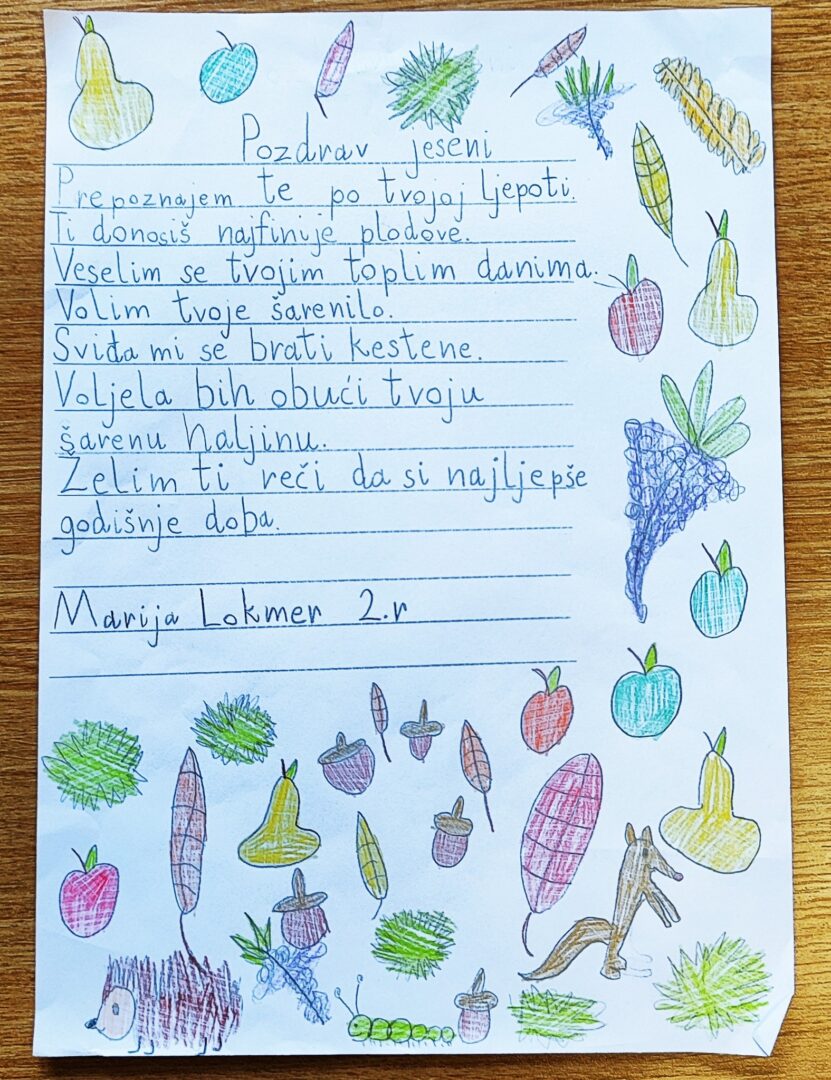 Pozdrav jeseni
Prepoznajem te po tvojoj ljepoti.
Ti donosiš najfinije plodove.
Veselim se tvojim toplim danima.
Volim tvoje šarenilo.
Sviđa mi se brati kestene.
Voljela bih obući tvoju
šarenu haljinu.
Želim ti reči da si najljepše
godišnje doba.
Marija Lokmer 2.r